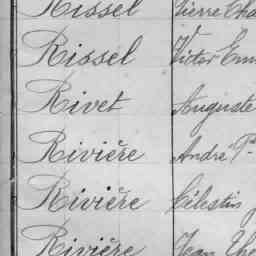 Rissel Pierre
Rissel Victor
Rivet Auguste
Rivière André
Rivière Célestin
Rivière Jean